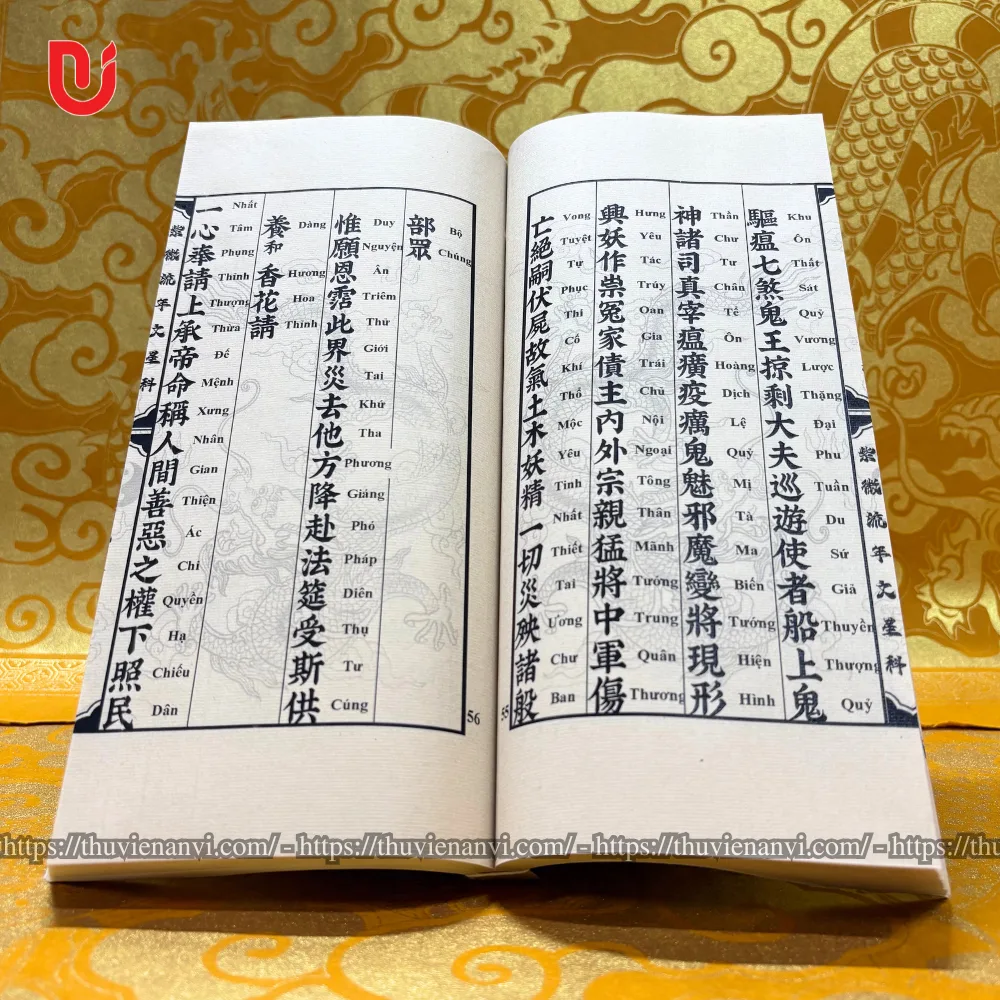 紫微流年文星科
驅瘟七煞鬼王掠剩大夫巡遊使者船上鬼
Khu Ôn Thất Sát Quỷ Vương Lược Thặng Đại Phu Tuần Du Sứ Giả Thuyền Thượng Quỷ
神諸司真宰瘟癀疫癘鬼魅邪魔變將現形
Thần Chư Tư Chân Tể Ôn Hoàng Dịch Lệ Quỷ Mị Tà Ma Biến Tướng Hiện Hình
興妖作祟冤家債主內外宗親猛將中軍傷
Hưng Yêu Tác Trúy Oan Gia Trái Chủ Nội Ngoại Tông Thân Mãnh Tướng Trung Quân Thương
亡絕嗣伏屍故氣土木妖精一切災殃諸般
Vong Tuyệt Tự Phục Thi Cố Khí Thổ Mộc Yêu Tinh Nhất Thiết Tai Ương Chư Ban
55
部眾
Bộ Chúng
惟願恩霑此界災去他方降赴法筵受斯供
Duy Nguyện Ân Triêm Thử Giới Tai Khứ Tha Phương Giảng Phó Pháp Diên Thụ Tư Cúng
養和香花請
Dàng Hương Hoa Thỉnh
一心奉請上承帝命稱人間善惡之權下照民
Nhất Tâm Phụng Thỉnh Thượng Thừa Đế Mệnh Xưng Nhân Gian Thiện Ác Chi Quyền Hạ Chiếu Dân
紫微流年文星科
56
https://thuvienanvi.com/ - https://thuvienanvi.com/ - https://thuvienanvi.com/ - https://thuvienanvi.com/